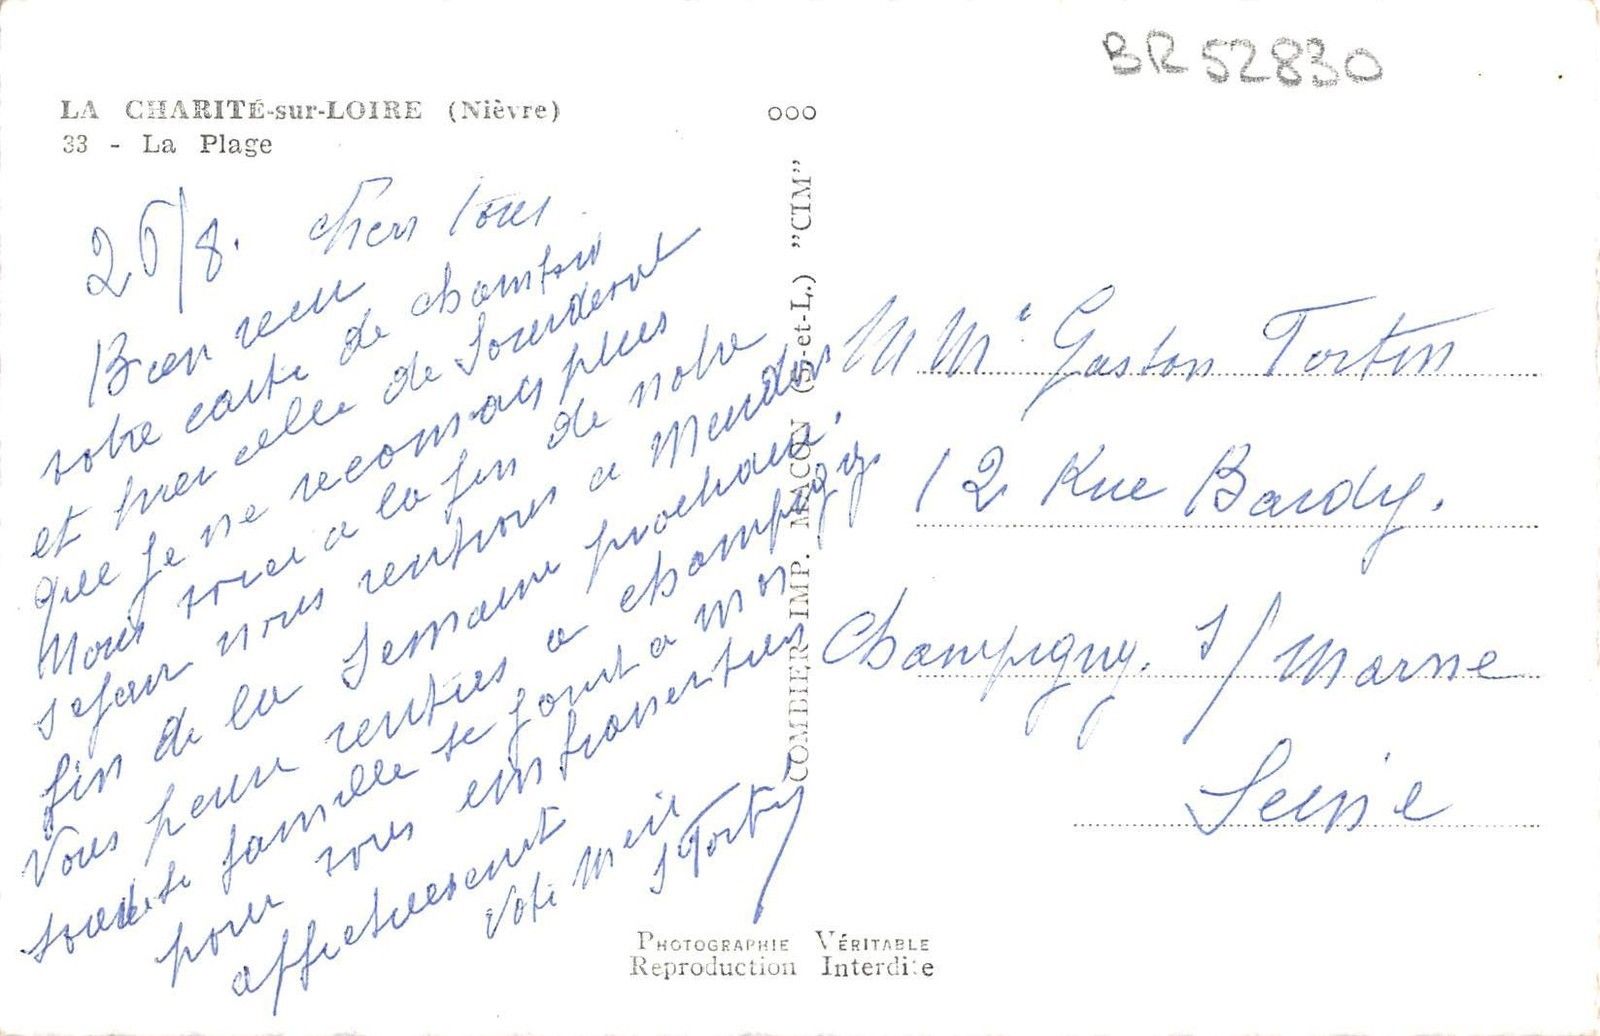 BR 52830
LA CHARITÉ-sur-LOIRE (Nièvre)
33 - La Plage
ooo
COMBIER IMP. MACON (S.-et-L.) "CIM"
26/8. Chers Tous
Bien reçu
votre carte de
et hier celle de Sourdeval
que je ne reconnais plus
Nous voici a la fin de notre
sejour nous rentrons a
fin de la semaine prochaine.
Vous serez rentrés a Champigny.
toute la famille se joint a moi
pour vous
affectueusement
Tortin
M Me Gaston Tortin
12 Rue Bardy.
Champigny. s/ Marne
Seine
PHOTOGRAPHIE VÉRITABLE
Reproduction Interdite